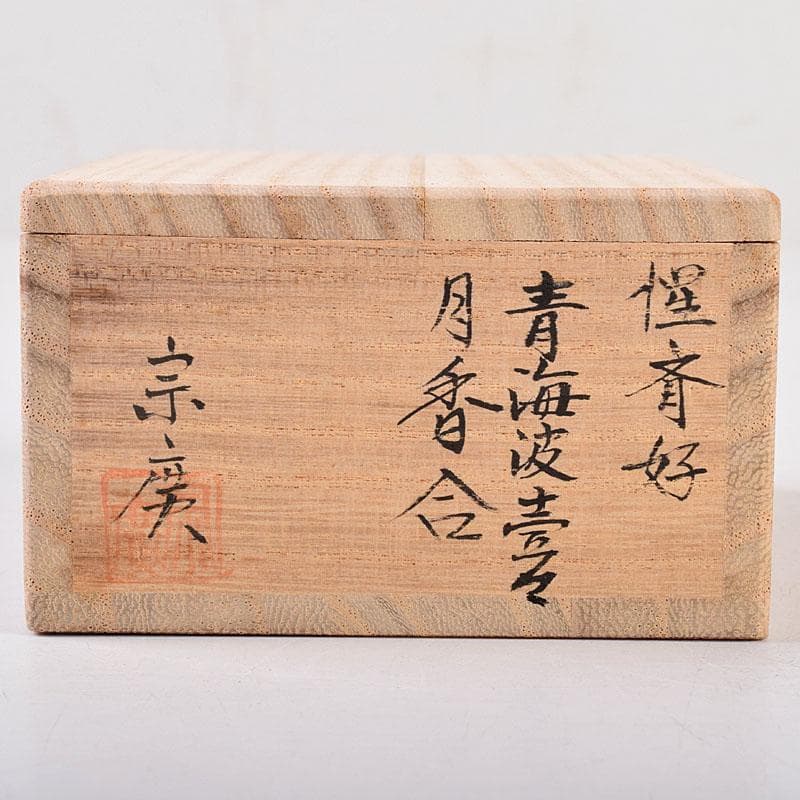 惺斎好
青海波壷々
月香合
宗廣